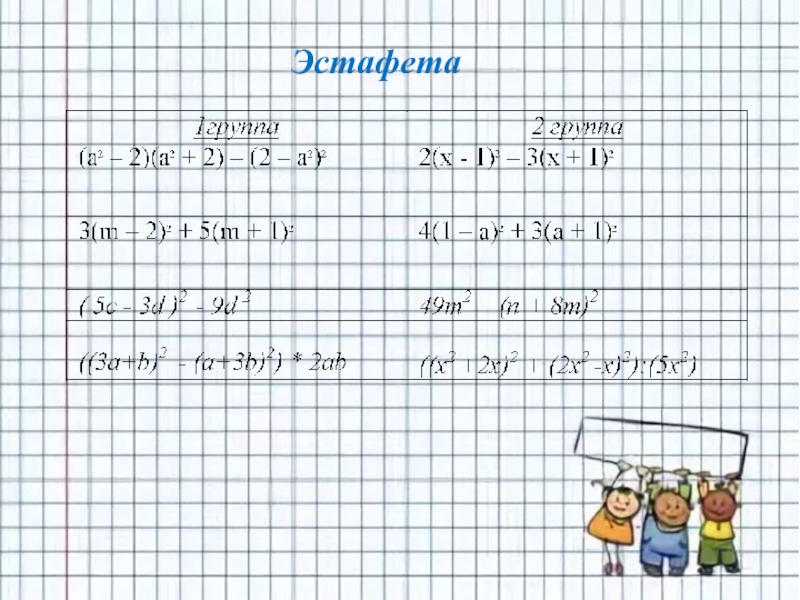 Эстафета
1группа 2 группа
(a² – 2)(a² + 2) – (2 – a²)² 2(x - 1)² – 3(x + 1)²
3(m – 2)² + 5(m + 1)² 4(1 – a)² + 3(a + 1)²
( 5c - 3d )² - 9d ² 49m² (n + 8m)²
((3a+b)² - (a+3b)²) * 2ab ((x² + 2x)² + (2x² -x)²):(5x²)